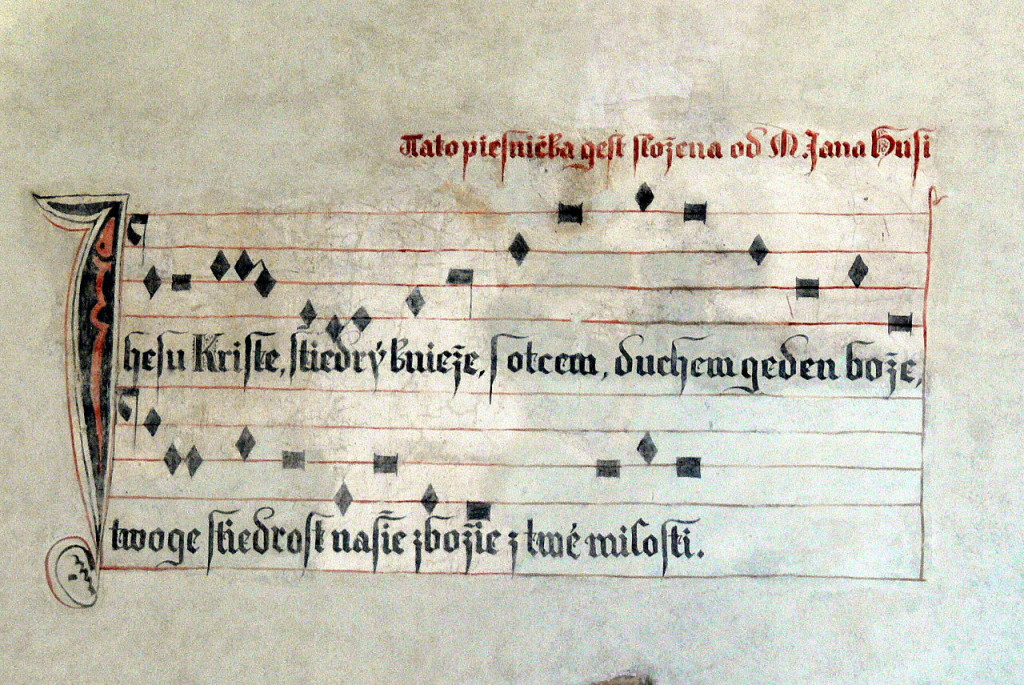 Tato piesnička gest složena od M. Jana Husi
Jhesu Kriste, štiedrý knieže, s otcem, duchem geden bože,
twoge štiedrost našie zbožie z twé milosti.